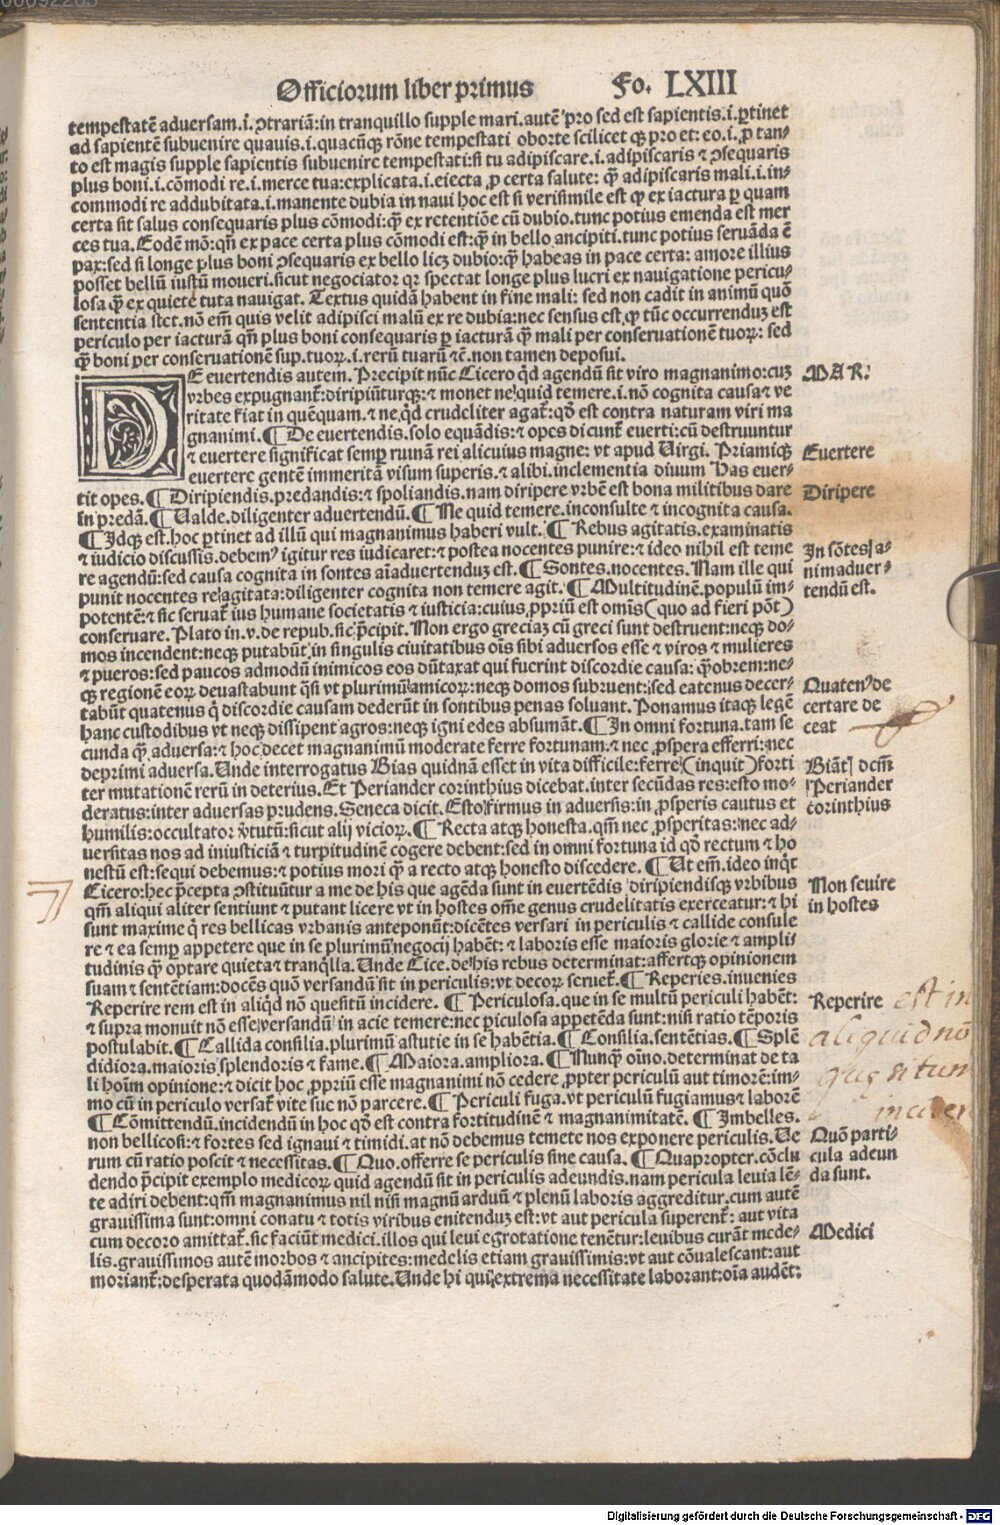 Officiorum liber primus Fo. LXIII
tempestatē adversam.i.ꝯtrariā:in tranquillo supple mari.autē pro sed est sapientis.i.ꝑtinet
ad sapientē subuenire quauis.i.quacūqꝫ rōne tempestati oborte scilicet qꝫ pro et:eo.i.ꝓ tan-
to est magis supple sapientis subuenire tempestati:si tu adipiscare.i.adipiscaris ⁊ ꝯsequaris
plus boni.i.cōmodi re.i.merce tua:explicata.i.eiecta ꝓ certa salute: qꝫ̄ adipiscaris mali.i.in-
commodi re addubitata.i.manente dubia in naui hoc est si verisimile est ꝙ ex iactura ꝑ quam
certa sit salus consequaris plus cōmodi:qꝫ̄ ex retentiōe cū dubio.tunc potius emenda est mer
ces tua.Eodē mō:qn̄ ex pace certa plus cōmodi est:qꝫ̄ in bello ancipiti.tunc potius seruāda ē
pax:sed si longe plus boni ꝯsequaris ex bello licꝫ dubio:qꝫ̄ habeas in pace certa: amore illius
posset bellū iustū moueri.sicut negociator qꝛ spectat longe plus lucri ex nauigatione pericu-
losa qꝫ̄ ex quiete tuta nauigat. Textus quidā habent in fine mali: sed non cadit in animū quō
sententia stet.nō em̄ quis velit adipisci malū ex re dubia:nec sensus est ꝙ tūc occurrenduꝫ est
periculo per iacturā qn̄ plus boni consequaris ꝑ iacturā qꝫ̄ mali per conseruationē tuoꝝ: sed
qꝫ̄ boni per conseruationē sup.tuoꝝ.i.rerū tuarū ⁊c̄.non tamen deposui.
DE euertendis autem. Precipit nūc Cicero qd̄ agendū sit viro magnanimo:cuꝫ MAR:
vrbes expugnant᷑:diripiūturqꝫ:⁊ monet ne quid temere.i.nō cognita causa ⁊ ve
ritate fiat in quēquam.⁊ ne qd̄ crudeliter agat᷑:qd̄ est contra naturam viri ma
gnanimi.¶De euertendis.solo equādis:⁊ opes dicunt᷑ euerti:cū destruuntur
⁊ euertere significat semꝑ ruinā rei alicuius magne: vt apud Uirgi. Priamiqꝫ Euertere
euertere gentē immeritā visum superis.⁊ alibi.inclementia diuum Has euer-
tit opes.¶Diripiendis.predandis:⁊ spoliandis.nam diripere vrbē est bona militibus dare Diripere
in predā.¶Ualde.diligenter aduertendū.¶Ne quid temere.inconsulte ⁊ incognita causa.
¶Idqꝫ est.hoc ꝑtinet ad illū qui magnanimus haberi vult.¶Rebus agitatis.examinatis
⁊ iudicio discussis.debemꝰ igitur res iudicare:⁊ postea nocentes punire:⁊ ideo nihil est teme In sōtes a-
re agendū:sed causa cognita in sontes aīaduertenduꝫ est.¶Sontes.nocentes. Nam ille qui nimaduer-
punit nocentes re agitata:diligenter cognita non temere agit.¶Multitudinē.populū im- tendū est.
potentē:⁊ sic seruat᷑ ius humane societatis ⁊ iusticia:cuius ꝓpriū est omīs(quo ad fieri pōt)
conseruare. Plato in.v.de repub.sic p̄cipit. Non ergo greciaꝫ cū greci sunt destruent:neqꝫ do-
mos incendent:neqꝫ putabūt in singulis ciuitatibus oīs sibi aduersos esse ⁊ viros ⁊ mulieres
⁊ pueros:sed paucos admodū inimicos eos dūtaxat qui fuerint discordie causa: qꝫ̄obrem:ne-
qꝫ regionē eoꝝ deuastabunt qīsi vt plurimū amicoꝝ:neqꝫ domos subruent:sed eatenus decer- Quatenꝰ de
tabūt quatenus qi discordie causam dederūt in sontibus penas soluant. Ponamus itaqꝫ legē certare de
hanc custodibus vt neqꝫ dissipent agros:neqꝫ igni edes absumāt.¶In omni fortuna.tam se ceat
cunda qꝫ̄ aduersa:⁊ hoc decet magnanimū moderate ferre fortunam.⁊ nec ꝓspera efferri:nec
deprimi aduersa.Unde interrogatus Bias quidnā esset in vita difficile:ferre(inquit)forti Biāt dcm̄
ter mutationē rerū in deterius. Et Periander corinthius dicebat.inter secūdas res:esto mo- Periander
deratus:inter aduersas prudens.Seneca dicit.Esto firmus in aduersis:in ꝓsperis cautus et corinthius
humilis:occultator v̓tutū:sicut alij vicioꝝ.¶Recta atqꝫ honesta.qm̄ nec ꝓsperitas:nec ad-
uersitas nos ad iniusticiā ⁊ turpitudinē cogere debent:sed in omni fortuna id qd̄ rectum ⁊ ho
nestū est:sequi debemus:⁊ potius mori qꝫ̄ a recto atqꝫ honesto discedere.¶Ut em̄.ideo inq̇t
Cicero:hec p̄cepta ꝯstituūtur a me de his que agēda sunt in euertēdis diripiendisqꝫ vrbibus Non seuire
qm̄ aliqui aliter sentiunt ⁊ putant licere vt in hostes om̄e genus crudelitatis exerceatur:⁊ hi in hostes
sunt maxime qi res bellicas vrbanis anteponūt:dicētes versari in periculis ⁊ callide consule
re ⁊ ea semꝑ appetere que in se plurimū negocij habēt: ⁊ laboris esse maioris glorie ⁊ ampli-
tudinis qꝫ̄ optare quieta ⁊ tranq̇lla.Unde Cice.de his rebus determinat:affertqꝫ opinionem
suam ⁊ sentētiam:docēs quō versandū sit in periculis:vt decoꝝ seruet᷑.¶Reperies.inuenies
Reperire rem est in aliqd̄ nō quesitū incidere.¶Periculosa.que in se multū periculi habēt: Reperire est in
⁊ supra monuit nō esse versandū in acie temere:nec ꝑiculosa appetēda sunt:nisi ratio tēporis aliquid nō
postulabit.¶Callida consilia.plurimū astutie in se habētia.¶Consilia.sentētias.¶Splē
didiora.maioris splendoris ⁊ fame.¶Maiora.ampliora.¶Nunqꝫ̄ oīno.determinat de ta quęsitum
li hoīm opinione:⁊ dicit hoc ꝓpriū esse magnanimi nō cedere ꝓpter periculū aut timorē:im-
mo cū in periculo versat᷑ vite sue nō parcere.¶Periculi fuga.vt periculū fugiamus ⁊ laborē incider
¶Cōmittendū.incidendū in hoc qd̄ est contra fortitudinē ⁊ magnanimitatē.¶Imbelles.
non bellicosi:⁊ fortes sed ignaui ⁊ timidi.at nō debemus temere nos exponere periculis.Ue Quō parti-
rum cū ratio poscit ⁊ necessitas.¶Quo.offerre se periculis sine causa.¶Quapropter.cōclu cula adeun
dendo p̄cipit exemplo medicoꝝ quid agendū sit in periculis adeundis.nam pericula leuia lē- da sunt.
te adiri debent:qm̄ magnanimus nil nisi magnū arduū ⁊ plenū laboris aggreditur.cum autē
grauissima sunt:omni conatu ⁊ totis viribus enitenduꝫ est:vt aut pericula superent᷑: aut vita
cum decoro amittat᷑.sic faciūt medici.illos qui leui egrotatione tenētur:leuibus curāt mede- Medici
lis.grauissimos autē morbos ⁊ ancipites:medelis etiam grauissimis:vt aut cōualescant:aut
moriant᷑:desperata quodāmodo salute.Unde hi qui extrema necessitate laborant:oīa audēt:
Digitalisierung gefördert durch die Deutsche Forschungsgemeinschaft - DFG